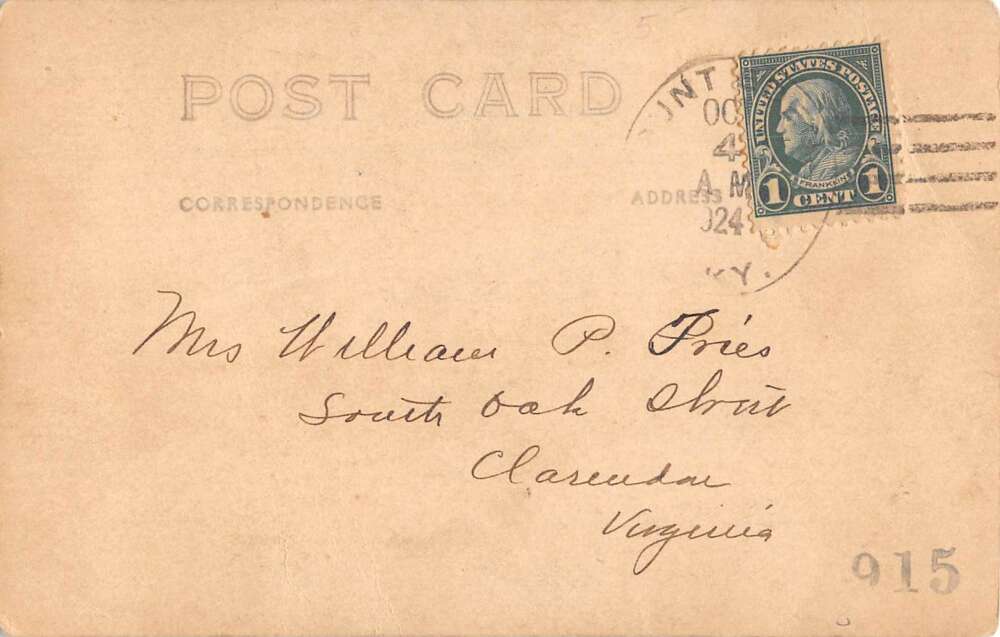 POST CARD
CORRESPONDENCE
ADDRESS
UNT
OC
4
A M
924
KY.
UNITED STATES POSTAGE
FRANKLIN
1 CENT 1
Mrs William P. Fries
South Oak Street
Clarendon
Virginia
915